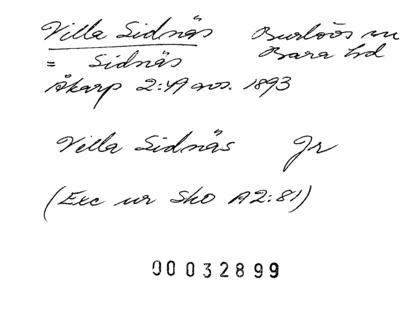 Villa Sidnäs Burlövs sn
= Sidnäs Bara hd
Åkarp 2:49 avs. 1893
Villa Sidnäs Jr
(Exc ur Sko A2:81)
00032899